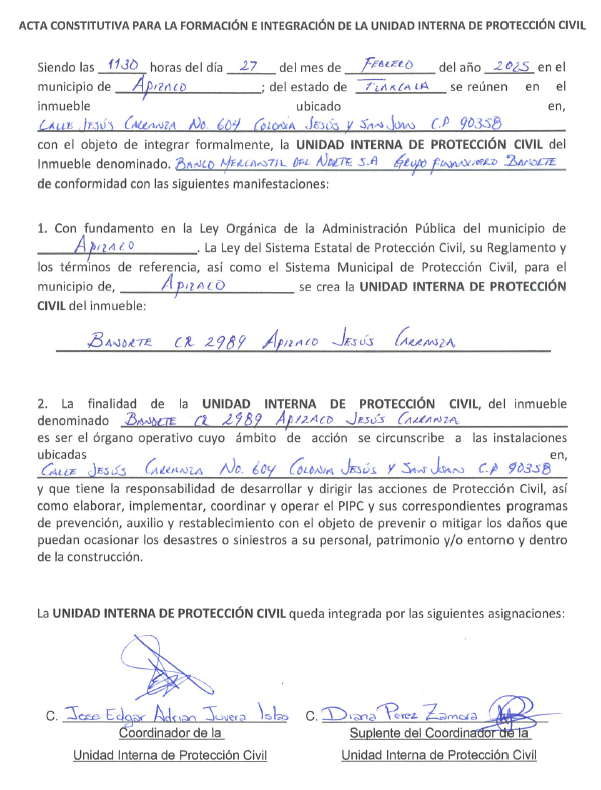 ACTA CONSTITUTIVA PARA LA FORMACIÓN E INTEGRACIÓN DE LA UNIDAD INTERNA DE PROTECCIÓN CIVIL
Siendo las 1130 horas del día 27 del mes de Febrero del año 2025 en el
municipio de Apizaco ; del estado de Tlaxcala se reúnen en el
inmueble ubicado en,
Calle Jesús Carranza No. 604 Colonia Jesús y San Juan C.P 90358
con el objeto de integrar formalmente, la UNIDAD INTERNA DE PROTECCIÓN CIVIL del
Inmueble denominado. Banco Mercantil del Norte S.A Grupo Financiero Banorte
de conformidad con las siguientes manifestaciones:
1. Con fundamento en la Ley Orgánica de la Administración Pública del municipio de
Apizaco . La Ley del Sistema Estatal de Protección Civil, su Reglamento y
los términos de referencia, así como el Sistema Municipal de Protección Civil, para el
municipio de, Apizaco se crea la UNIDAD INTERNA DE PROTECCIÓN
CIVIL del inmueble:
Banorte CR 2989 Apizaco Jesús Carranza
2. La finalidad de la UNIDAD INTERNA DE PROTECCIÓN CIVIL, del inmueble
denominado Banorte CR 2989 Apizaco Jesús Carranza
es ser el órgano operativo cuyo ámbito de acción se circunscribe a las instalaciones
ubicadas en,
Calle Jesús Carranza No. 604 Colonia Jesús y San Juan C.P 90358
y que tiene la responsabilidad de desarrollar y dirigir las acciones de Protección Civil, así
como elaborar, implementar, coordinar y operar el PIPC y sus correspondientes programas
de prevención, auxilio y restablecimiento con el objeto de prevenir o mitigar los daños que
puedan ocasionar los desastres o siniestros a su personal, patrimonio y/o entorno y dentro
de la construcción.
La UNIDAD INTERNA DE PROTECCIÓN CIVIL queda integrada por las siguientes asignaciones:
C. Jose Edgar Adrian Juvera Islas C. Diana Perez Zamora
Coordinador de la Suplente del Coordinador de la
Unidad Interna de Protección Civil Unidad Interna de Protección Civil